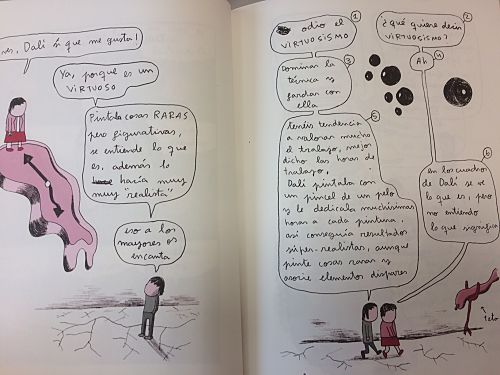 Dalí sí que me gusta!
Ya, porque es un
VIRTUOSO
Pintaba cosas RARAS
pero figurativas,
se entiende lo que
es, además lo
hacía muy
muy "realista"
eso a los
mayores os
encanta
1
odio el
VIRTUOSISMO
2
¿qué quiere decir
VIRTUOSISMO?
3
Dominar la
técnica y
fardar con
ella
4
Ah
5
tenéis tendencia
a valorar mucho
el trabajo, mejor
dicho las horas de
trabajo,
Dalí pintaba con
un pincel de un pelo
y le dedicaba muchísimas
horas a cada pintura,
así conseguía resultados
súper-realistas, aunque
pinte cosas raras y
asocie elementos dispares
6
en los cuadros
de Dalí se ve
lo que es, pero
no entiendo
lo que significa